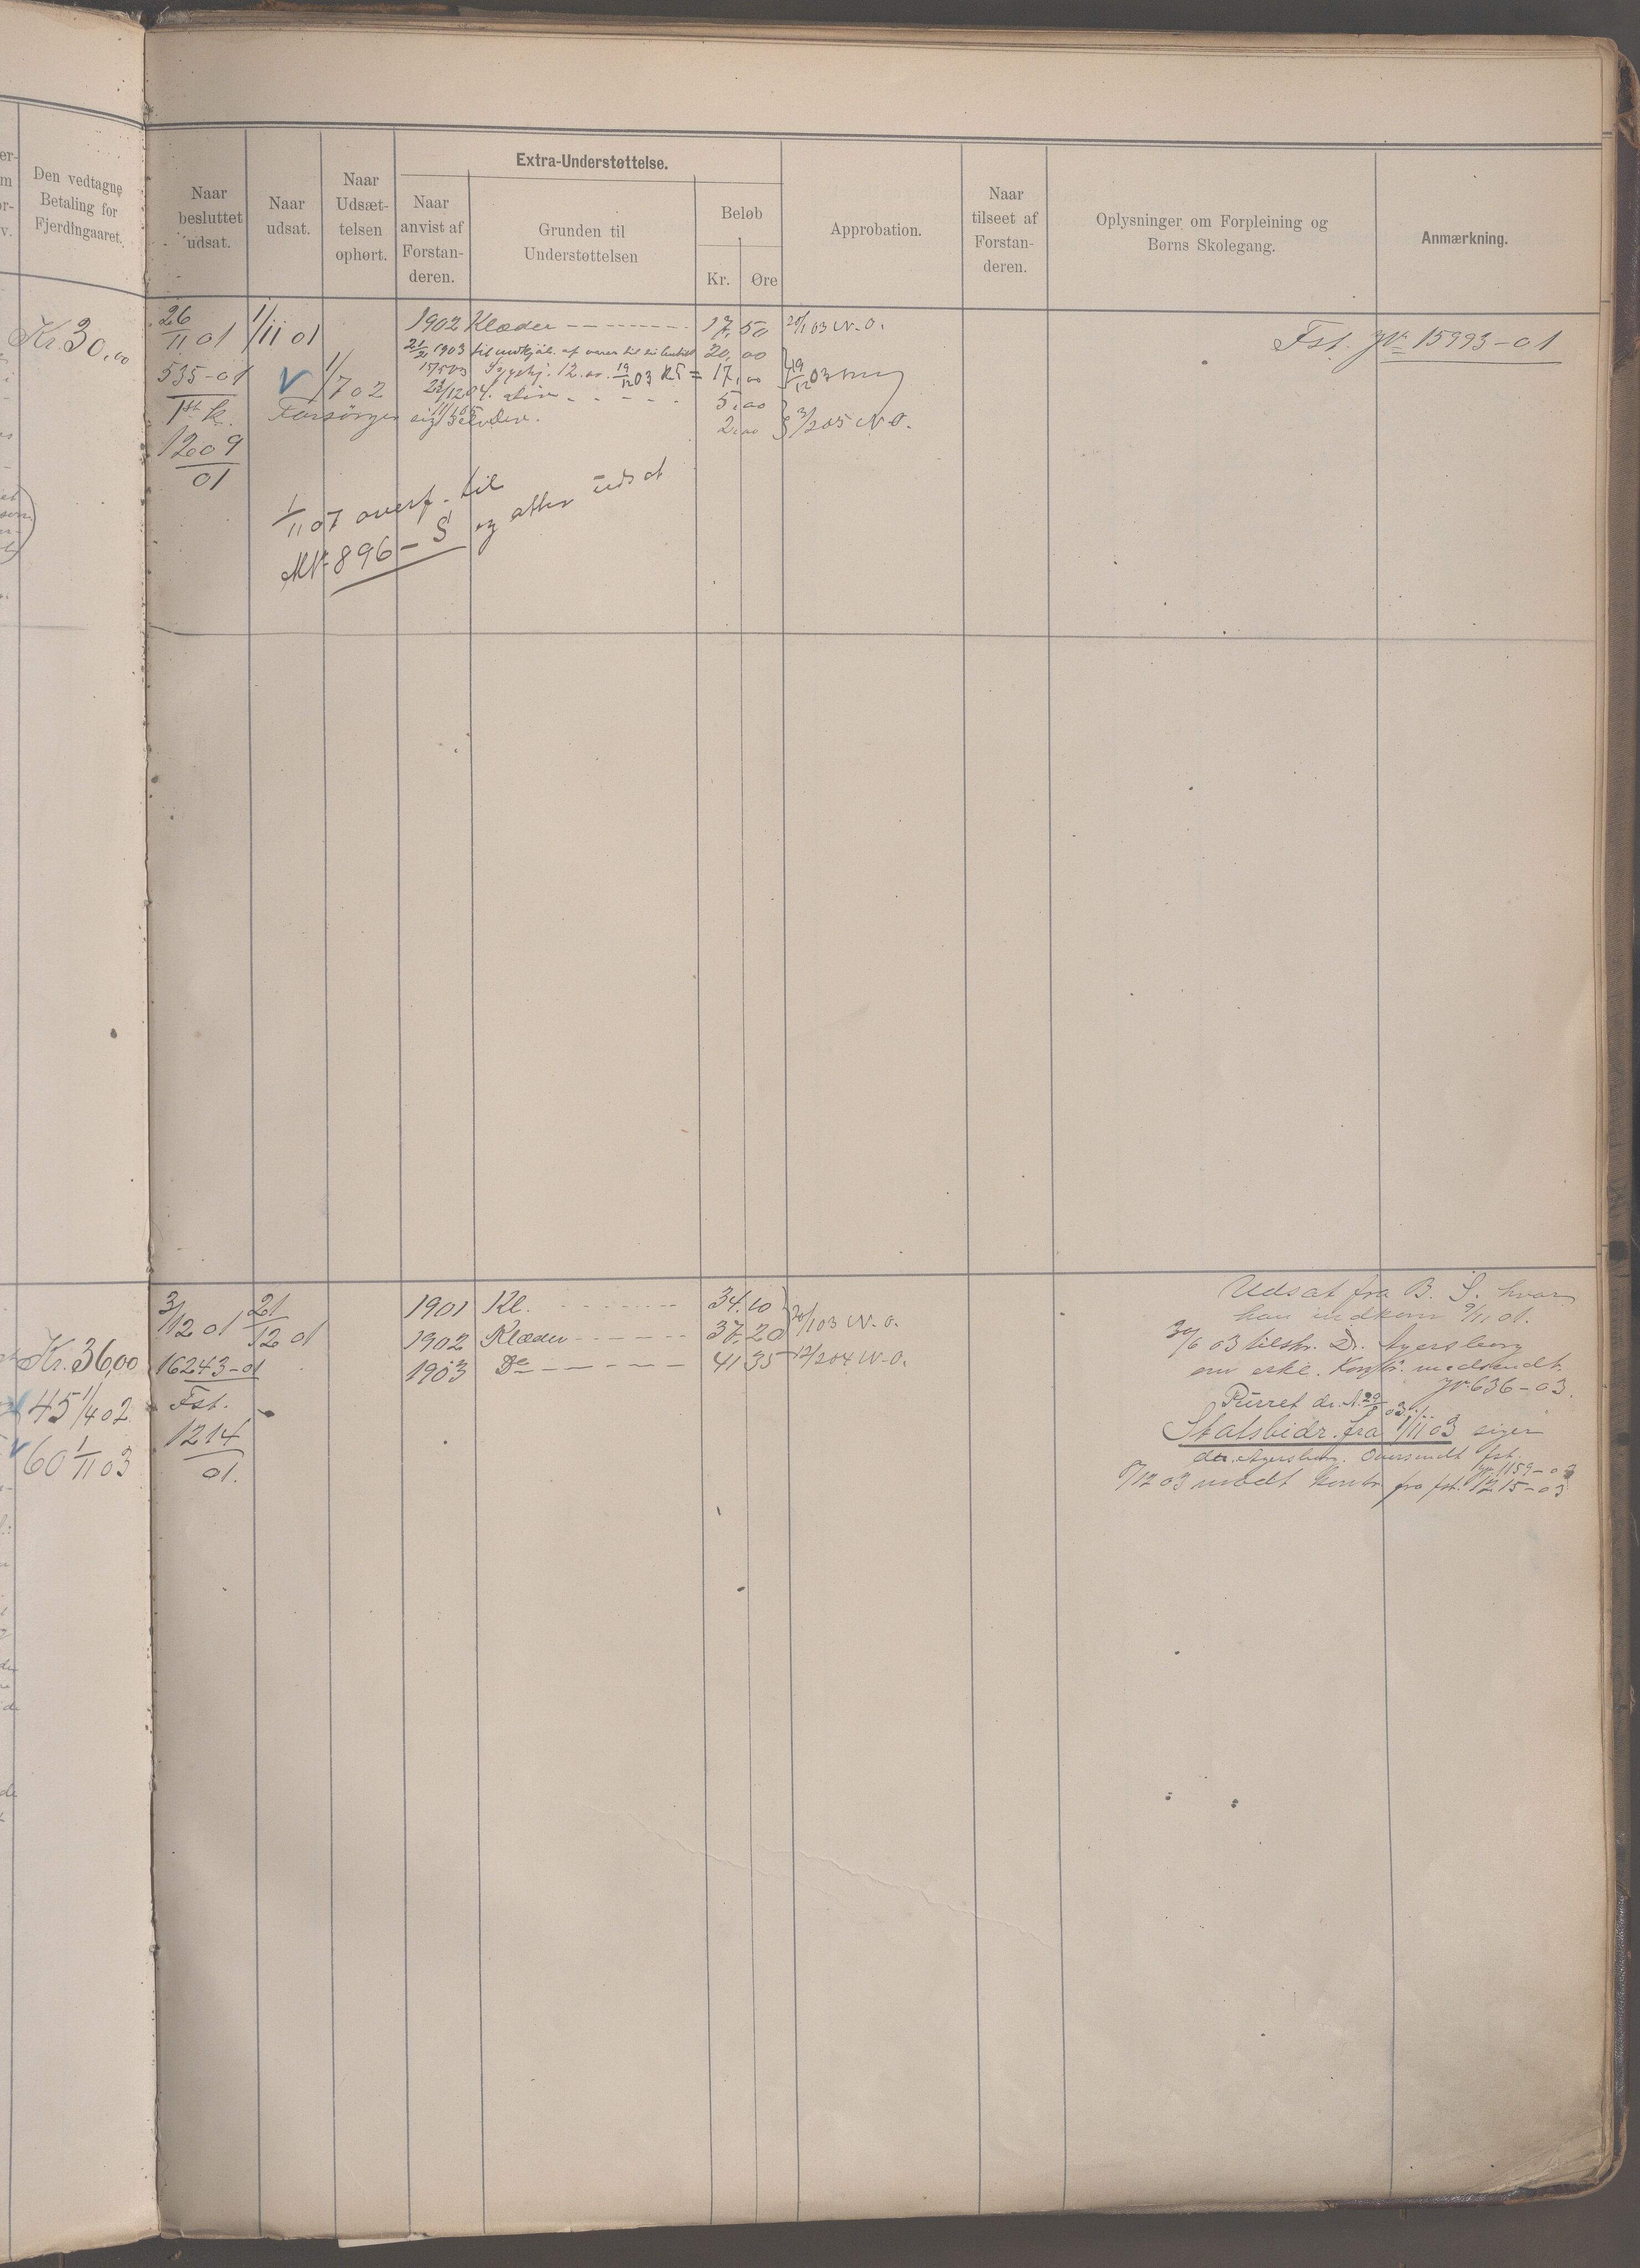 Den vedtagne
Betaling for
Fjerdingaaret.
Naar
besluttet
udsat.
Naar
udsat.
Naar
Udsæt-
telsen
ophørt.
Extra-Understøttelse.
Naar
anvist af
Forstan-
deren.
Grunden til
Understøttelsen
Beløb
Kr. Øre
Approbation.
Naar
tilseet af
Forstan-
deren.
Oplysninger om Forpleining og
Børns Skolegang.
Anmærkning.
Kr. 30,00
26/11 01
535-01
1ste k.
1209
01
1/11 01
1/7 02
Forsørger sig selv
1902 Klæder 17,50 20/1 03 N.O.
1903 til 20,00
Sygehj. 12.00 19/12 03 K 5 = 17,00 19/12 03
5,00
2,00 3/2 05 N.O.
Fst. Jr. 15993-01
1/11 07 overf. til
Nr. 896-S og atter udsat
Kr. 36,00
45 1/4 02
60 1/11 03
3/12 01
16243-01
Fst.
1214
01.
21/12 01
1901 Kl. 34.10
1902 Klæder 37.20 20/1 03 N.O.
1903 Do 41 35 12/2 04 N.O.
Udsat fra B. S. hvor
han indkom 9/11 01.
30/6 03 tilskr. Dr.
om erkl. medsendt.
Jr. 636-03.
Purret dr. A. 29/8 03
Statsbidr. fra 1/11 03 siger
dr. Oversendt fst.
1159-03
8/12 03 fra fst. 1215-03